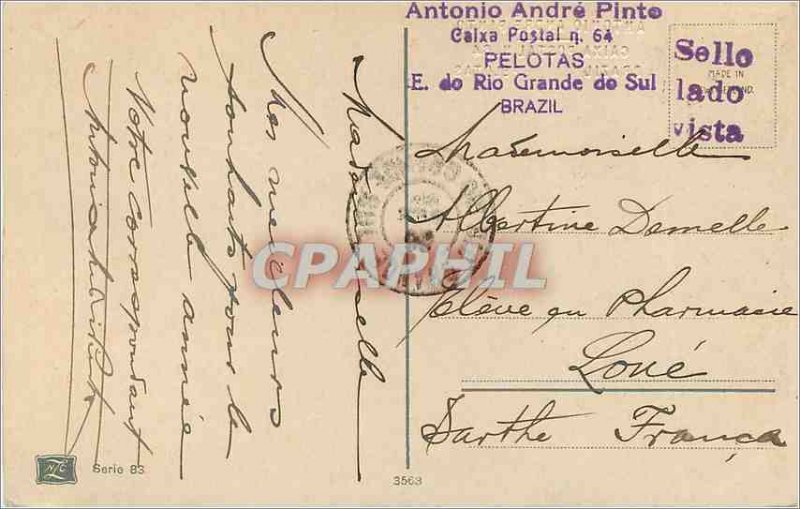 Antonio André Pinto
Caixa Postal n. 64
PELOTAS
E. do Rio Grande do Sul
BRAZIL
Sello
lado
vista
MADE IN
Mademoiselle
Albertine Demelle
Elève en Pharmacie
Loué
Sarthe França
Mademoiselle
Mes meilleurs
souhaits pour la
nouvelle année
Votre Correspondant
CPAPHIL
NPG
Serie 83
3563